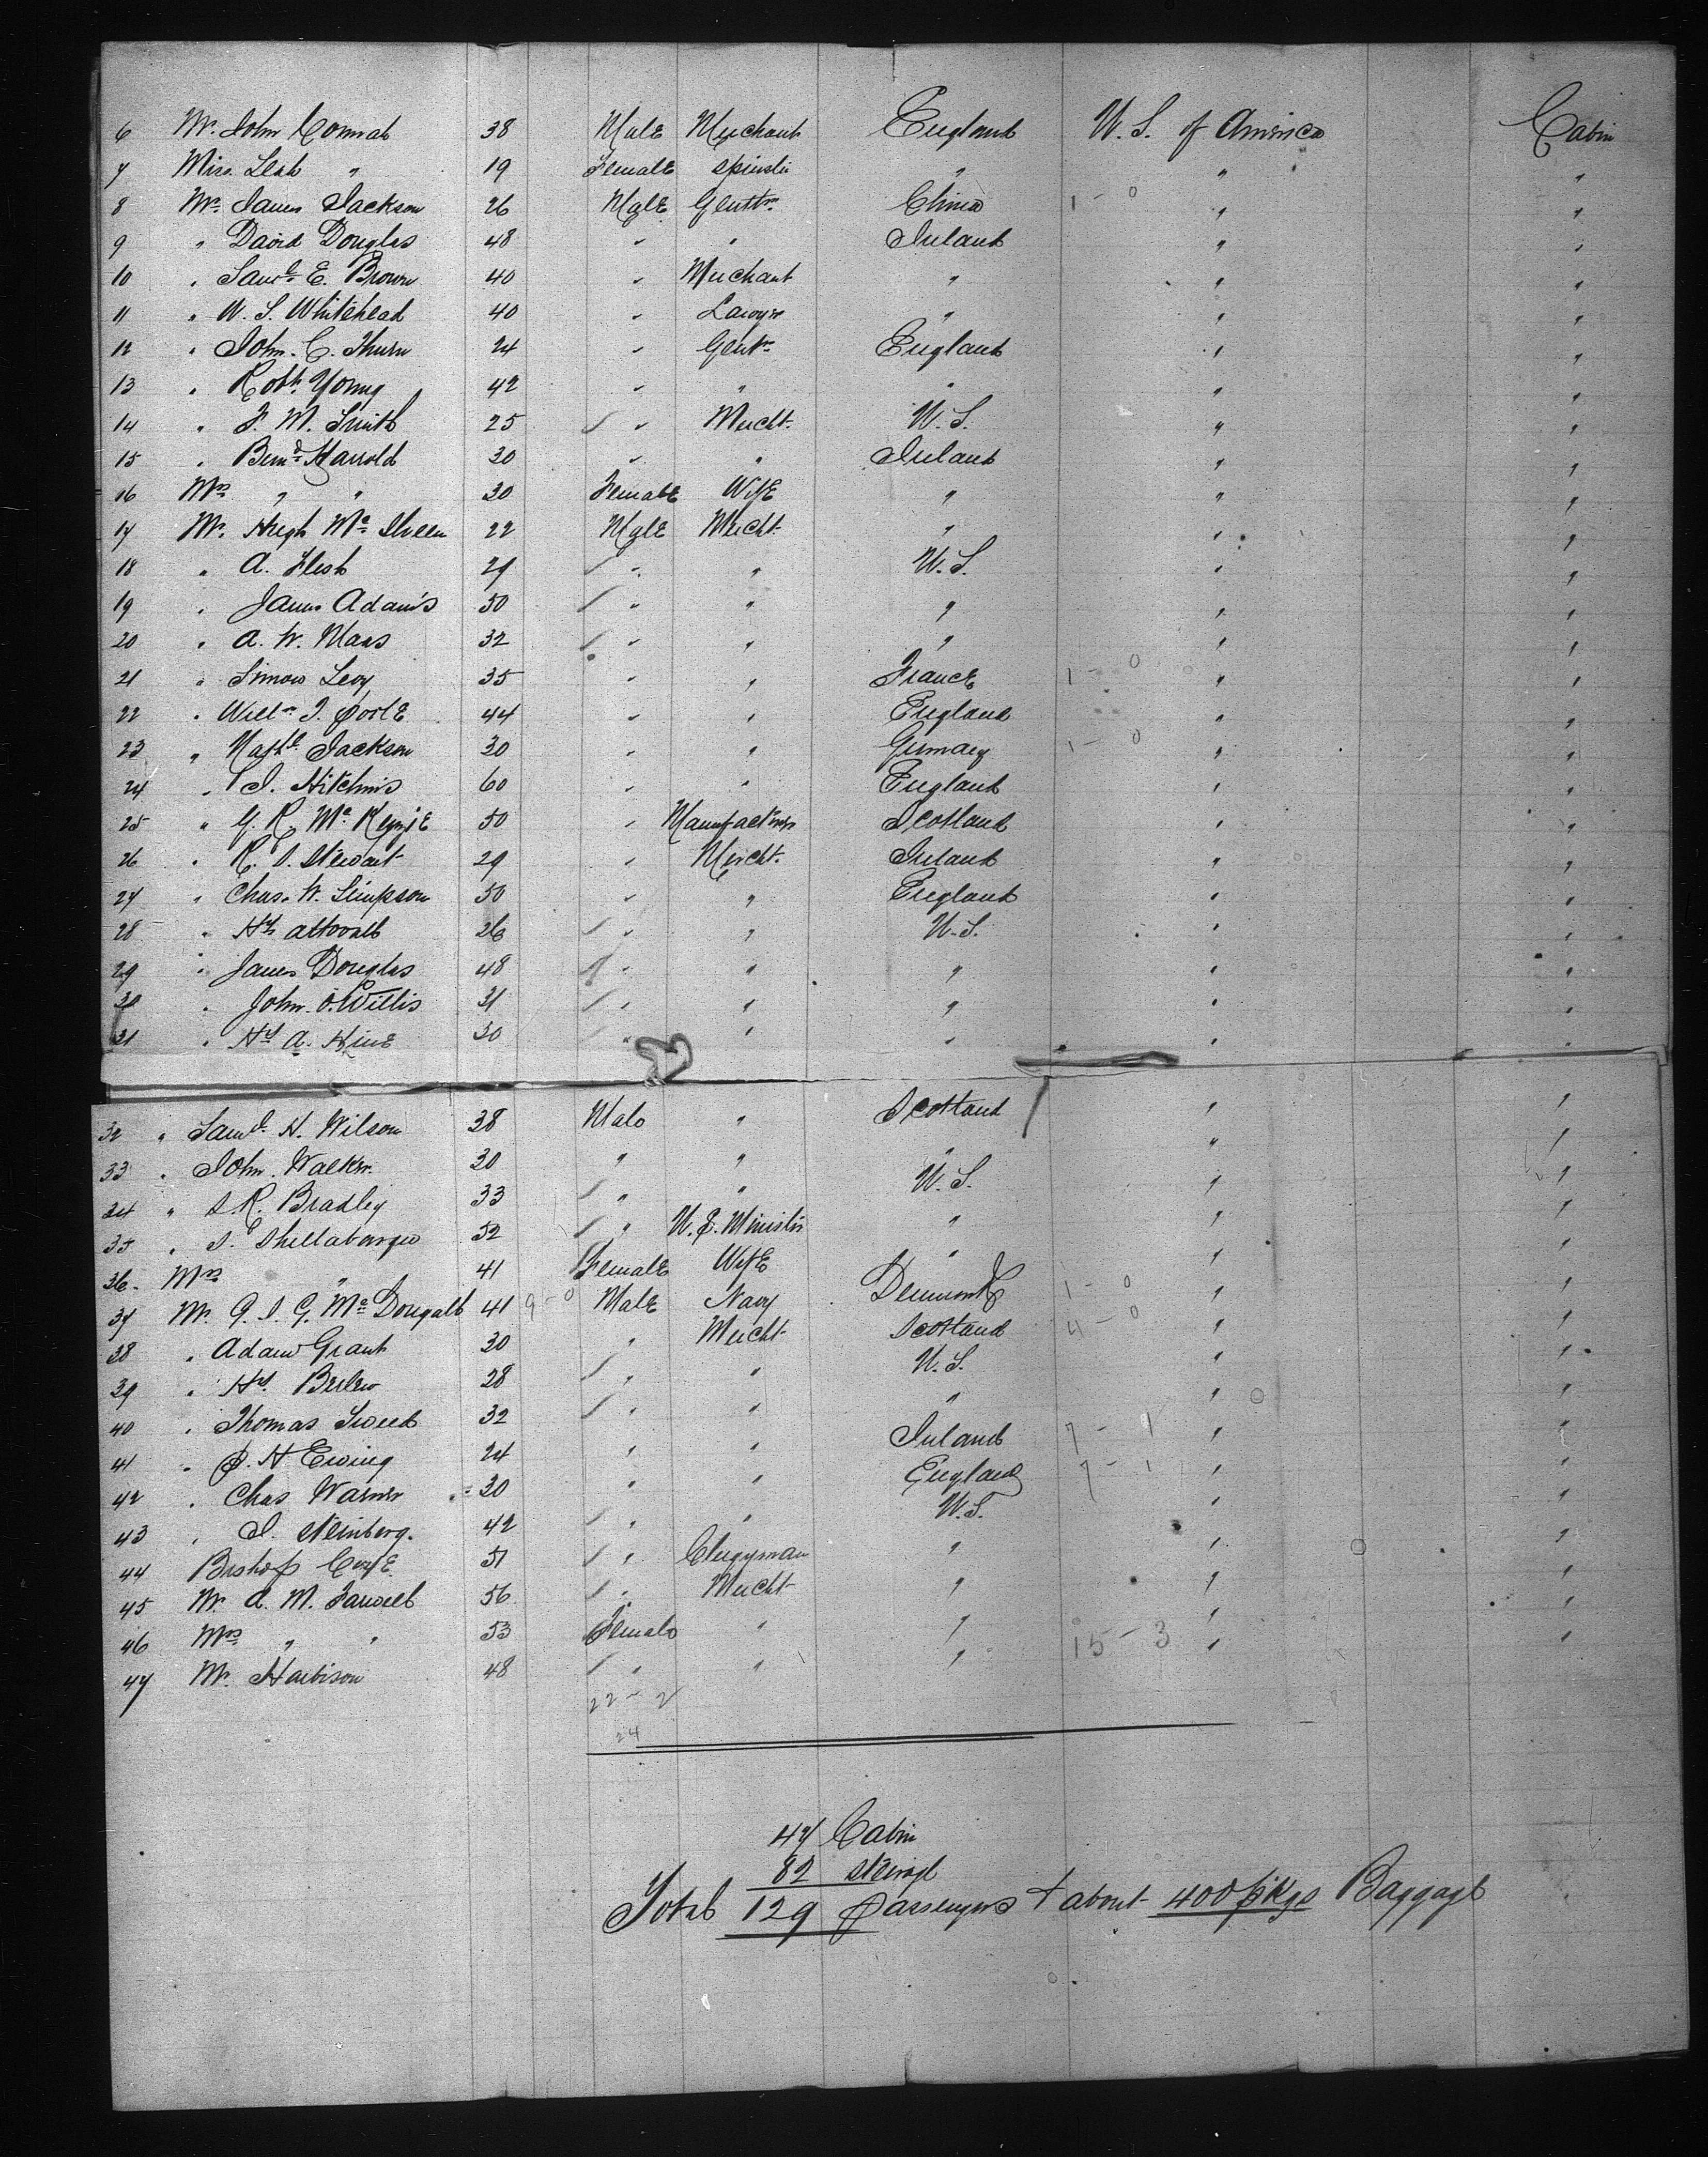 6 Mr. John Conrad 38 Male Merchant England U. S. of America Cabin
7 Miss Leah " 19 Female Spinster " " "
8 Mr. James Jackson 26 Male Gentn. China 1 - 0 " "
9 " David Douglas 48 " " Ireland " "
10 " Saml. E. Brown 40 " Merchant " " "
11 " W. S. Whitehead 40 " Lawyer " " "
12 " John. C. Thurn 24 " Gentn. England " "
13 " Robt. Young 42 " " " " "
14 " F. M. Smith 25 " Mercht. U. S. " "
15 " Bernd. Harrold 30 " " Ireland " "
16 Mrs " " 30 Female Wife " " "
17 Mr. Hugh Mc 22 Male Mercht. " " "
18 " A. Flesh 29 " " U. S. " "
19 " James Adams 50 " " " " "
20 " A. W. Maas 32 " " " " "
21 " Simon Levy 35 " " France 1 - 0 " "
22 " Willm. J. 44 " " England " "
23 " Nathl. Jackson 30 " " Germany 1 - 0 " "
24 " J. Hitchins 60 " " England " "
25 " G. R. McKenzie 50 " Manufacturer Scotland " "
26 " R. S. Stewart 29 " Mercht. Ireland " "
27 " Chas. W. Simpson 50 " " England " "
28 " Hy. 26 " " U. S. " "
29 " James Douglas 48 " " " " "
30 " John O. Willis 31 " " " " "
31 " Hy. A. 30 " " " " "
32 " Saml. H. Wilson 38 Male " Scotland " "
33 " John Walker 30 " " " " "
34 " S. R. Bradley 33 " " U. S. " "
35 " S. Shellabarger 52 " U. S. Minister " " "
36 Mrs " 41 Female Wife " " "
37 Mr. G. S. G. McDougall 41 9 - 0 Male Navy Denmark 1 - 0 " "
38 " Adam Grant 30 " Mercht. Scotland 4 - 0 " "
39 " Hy. 28 " " U. S. " "
40 " Thomas 32 " " " " "
41 " P. H Ewing 24 " " Ireland 7 - 1 " "
42 " Chas Warner 30 " " England 7 - 1 " "
43 " S. Steinberg. 42 " " U. S. " "
44 Bishop 51 " Clergyman " " "
45 Mr. A. M. Farwell 56 " Mercht " " "
46 Mrs " " 53 Female " " " "
47 Mr. Harbison 48 " " " 15 - 3 " "
22 - 2
24
47 Cabin
82 Steerage
Total 129 passengers + about 400 pkgs Baggage